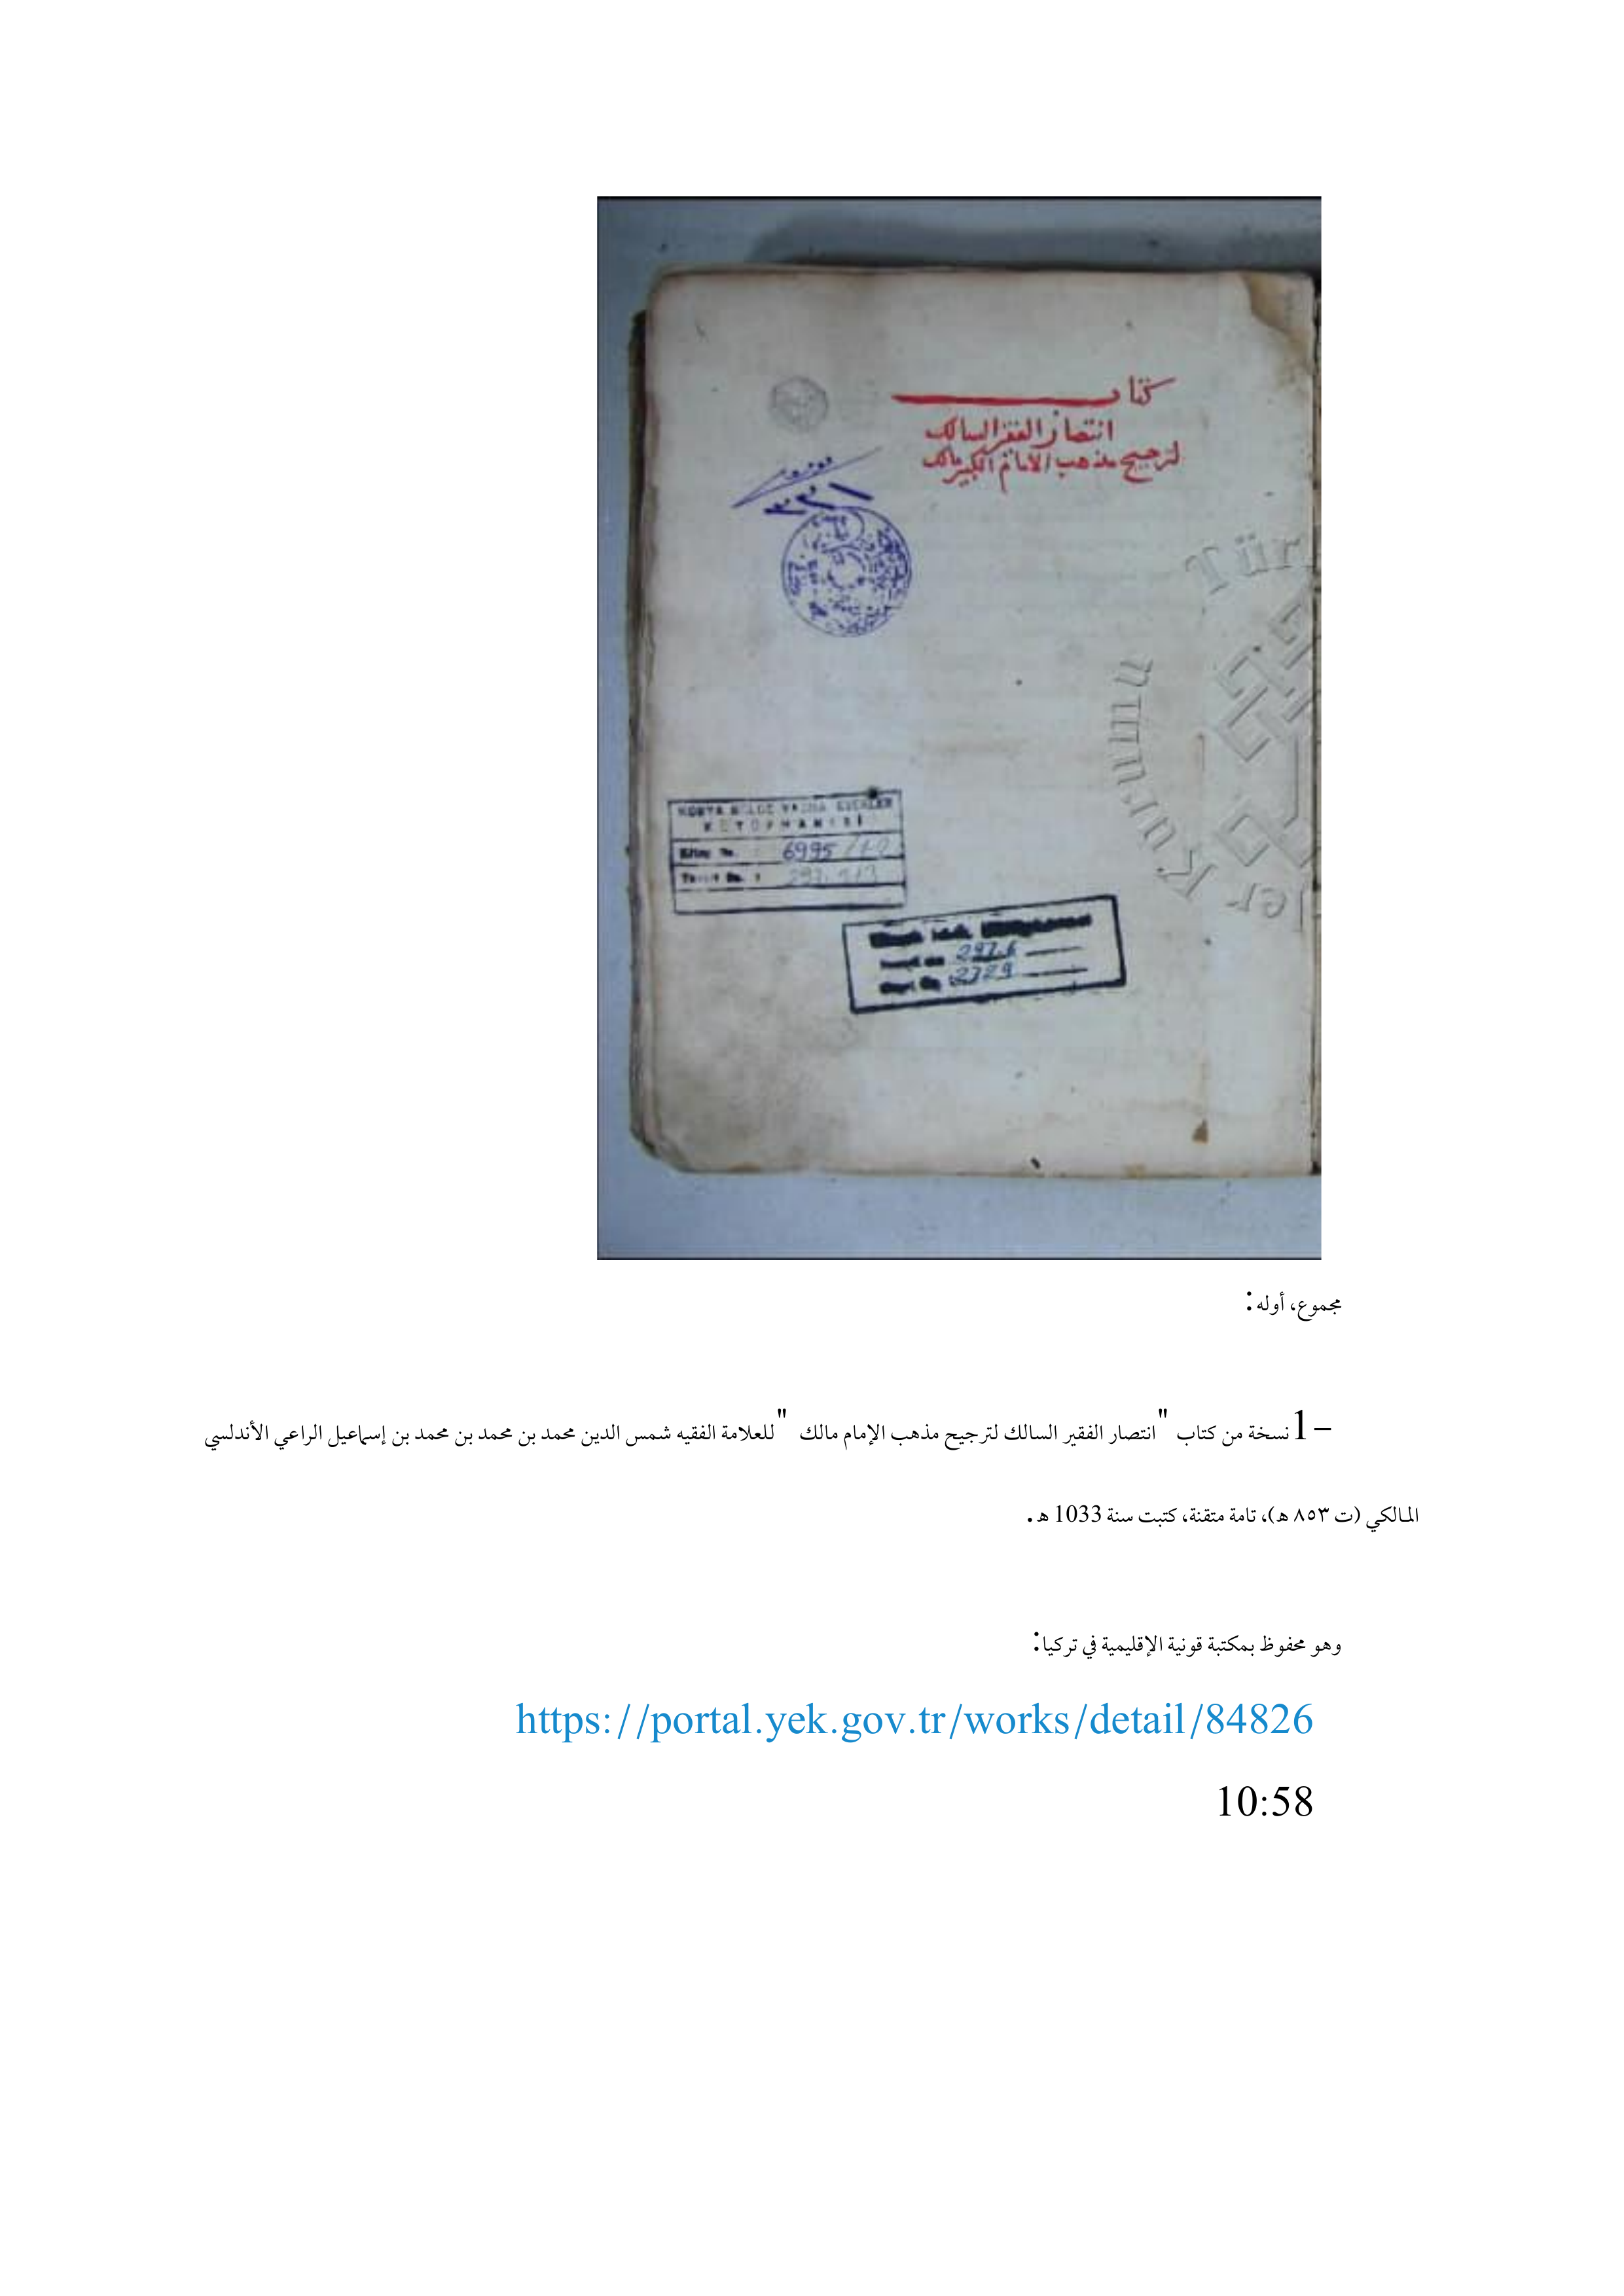 كتاب
انتصار الفقير السالك
لترجيح مذهب الامام الكبير مالك
Tür
KONYA YAZMA ESERLER
KÜTÜPHANESİ
6995
297.6
2729
مجموع، أوله:
1- نسخة من كتاب "انتصار الفقير السالك لترجيح مذهب الإمام مالك" للعلامة الفقيه شمس الدين محمد بن محمد بن محمد بن إسماعيل الراعي الأندلسي
المالكي (ت ٨٥٣ هـ)، تامة متقنة، كتبت سنة 1033 هـ.
وهو محفوظ بمكتبة قونية الإقليمية في تركيا:
https://portal.yek.gov.tr/works/detail/84826
10:58